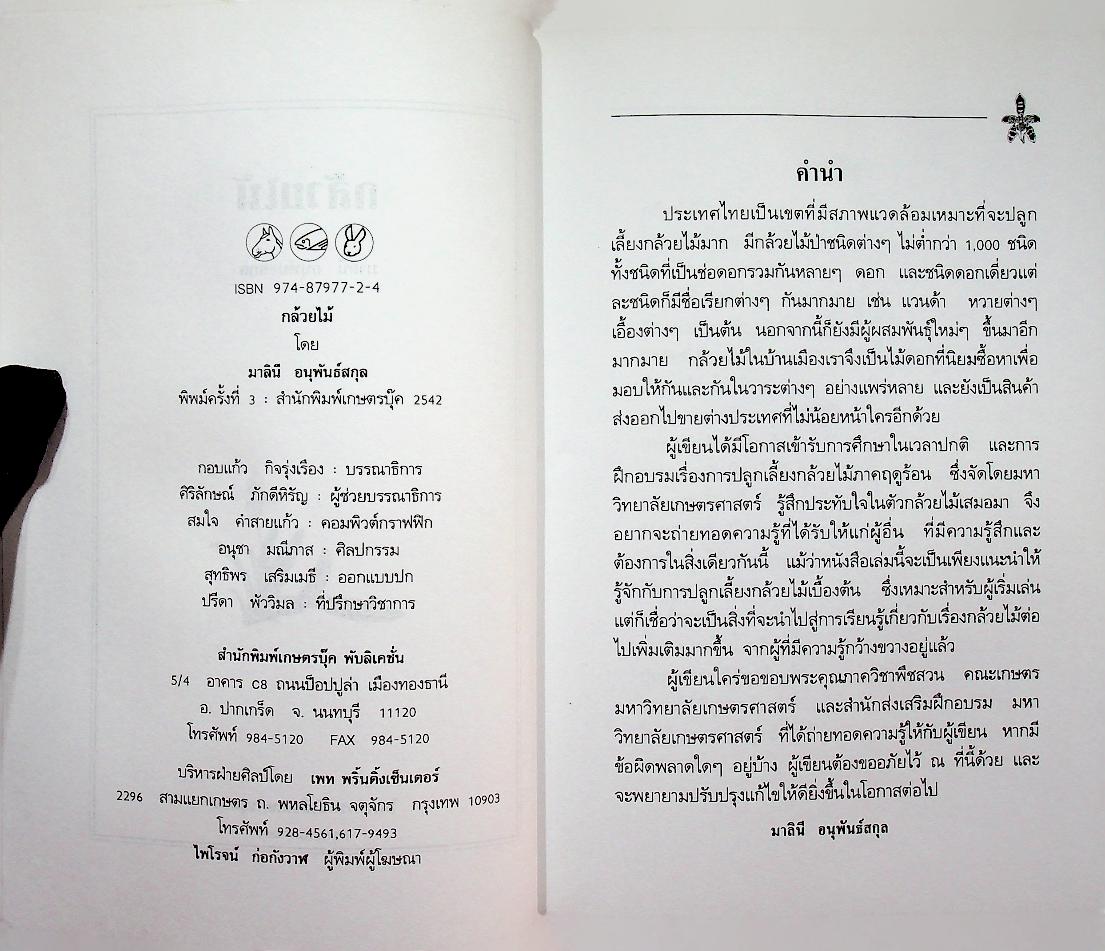 ISBN 974-87977-2-4
กล้วยไม้
โดย
มาลินี อนุพันธ์สกุล
พิพม์ครั้งที่ 3 : สำนักพิมพ์เกษตรบุ๊ค 2542
กอบแก้ว กิจรุ่งเรือง : บรรณาธิการ
ศิริลักษณ์ ภักดีหิรัญ : ผู้ช่วยบรรณาธิการ
สมใจ คำสายแก้ว : คอมพิวต์กราฟฟิก
อนุชา มณีภาส : ศิลปกรรม
สุทธิพร เสริมเมธี : ออกแบบปก
ปรีดา พัววิมล : ที่ปรึกษาวิชาการ
สำนักพิมพ์เกษตรบุ๊ค พับลิเคชั่น
5/4 อาคาร C8 ถนนป็อปปูล่า เมืองทองธานี
อ. ปากเกร็ด จ. นนทบุรี 11120
โทรศัพท์ 984-5120 FAX 984-5120
บริหารฝ่ายศิลป์โดย เพท พริ้นติ้งเซ็นเตอร์
2296 สามแยกเกษตร ถ. พหลโยธิน จตุจักร กรุงเทพ 10903
โทรศัพท์ 928-4561,617-9493
ไพโรจน์ ก่อกังวาฬ ผู้พิมพ์ผู้โฆษณา
คำนำ
ประเทศไทยเป็นเขตที่มีสภาพแวดล้อมเหมาะที่จะปลูก
เลี้ยงกล้วยไม้มาก มีกล้วยไม้ป่าชนิดต่างๆ ไม่ต่ำกว่า 1,000 ชนิด
ทั้งชนิดที่เป็นช่อดอกรวมกันหลายๆ ดอก และชนิดดอกเดี่ยวแต่
ละชนิดก็มีชื่อเรียกต่างๆ กันมากมาย เช่น แวนด้า หวายต่างๆ
เอื้องต่างๆ เป็นต้น นอกจากนี้ก็ยังมีผู้ผสมพันธุ์ใหม่ๆ ขึ้นมาอีก
มากมาย กล้วยไม้ในบ้านเมืองเราจึงเป็นไม้ดอกที่นิยมซื้อหาเพื่อ
มอบให้กันและกันในวาระต่างๆ อย่างแพร่หลาย และยังเป็นสินค้า
ส่งออกไปขายต่างประเทศที่ไม่น้อยหน้าใครอีกด้วย
ผู้เขียนได้มีโอกาสเข้ารับการศึกษาในเวลาปกติ และการ
ฝึกอบรมเรื่องการปลูกเลี้ยงกล้วยไม้ภาคฤดูร้อน ซึ่งจัดโดยมหา
วิทยาลัยเกษตรศาสตร์ รู้สึกประทับใจในตัวกล้วยไม้เสมอมา จึง
อยากจะถ่ายทอดความรู้ที่ได้รับให้แก่ผู้อื่น ที่มีความรู้สึกและ
ต้องการในสิ่งเดียวกันนี้ แม้ว่าหนังสือเล่มนี้จะเป็นเพียงแนะนำให้
รู้จักกับการปลูกเลี้ยงกล้วยไม้เบื้องต้น ซึ่งเหมาะสำหรับผู้เริ่มเล่น
แต่ก็เชื่อว่าจะเป็นสิ่งที่จะนำไปสู่การเรียนรู้เกี่ยวกับเรื่องกล้วยไม้ต่อ
ไปเพิ่มเติมมากขึ้น จากผู้ที่มีความรู้กว้างขวางอยู่แล้ว
ผู้เขียนใคร่ขอขอบพระคุณภาควิชาพืชสวน คณะเกษตร
มหาวิทยาลัยเกษตรศาสตร์ และสำนักส่งเสริมฝึกอบรม มหา
วิทยาลัยเกษตรศาสตร์ ที่ได้ถ่ายทอดความรู้ให้กับผู้เขียน หากมี
ข้อผิดพลาดใดๆ อยู่บ้าง ผู้เขียนต้องขออภัยไว้ ณ ที่นี้ด้วย และ
จะพยายามปรับปรุงแก้ไขให้ดียิ่งขึ้นในโอกาสต่อไป
มาลินี อนุพันธ์สกุล